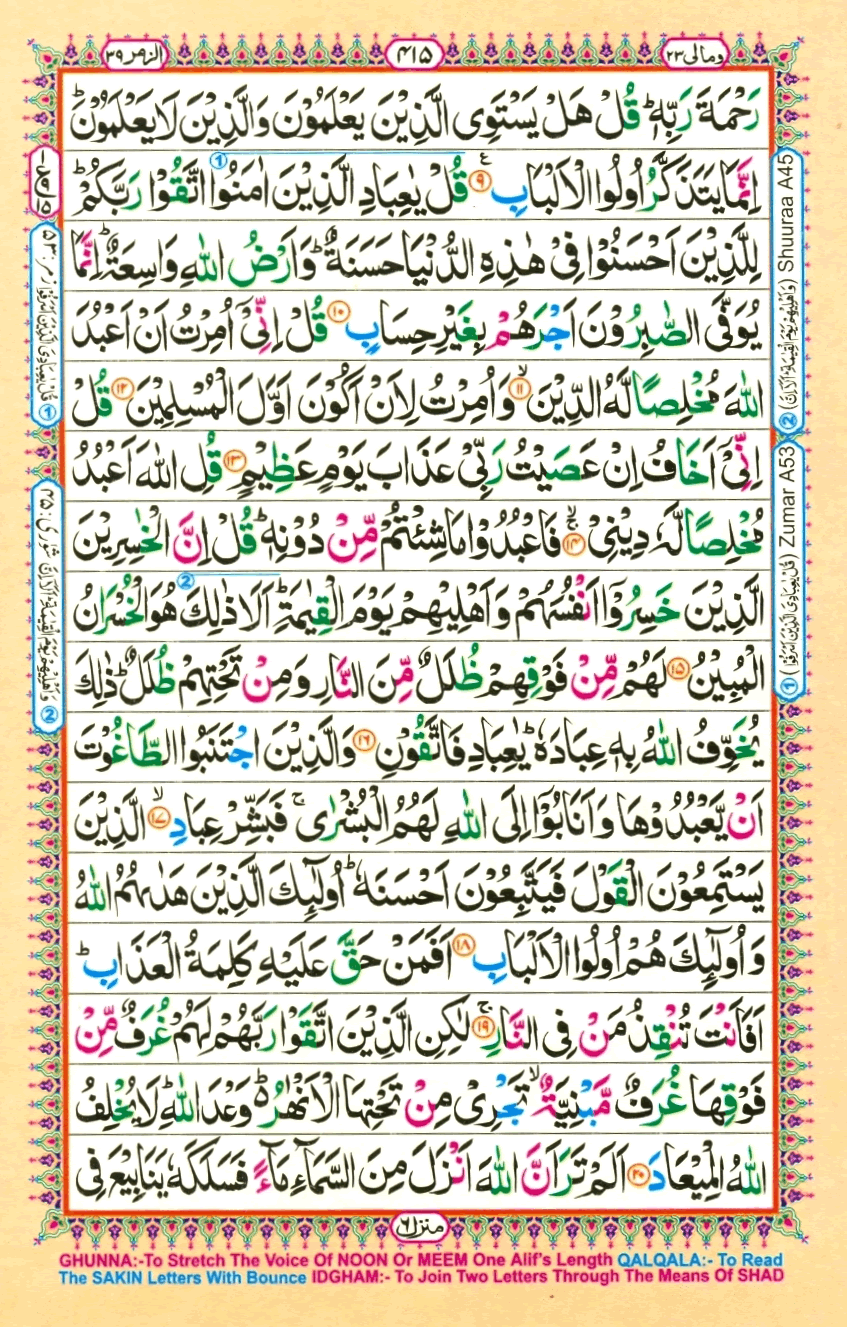 الزمر ٣٩
٤١٥
ومالی ٢٣
رَحْمَةَ رَبِّهٖ ؕ قُلْ هَلْ یَسْتَوِی الَّذِیْنَ یَعْلَمُوْنَ وَالَّذِیْنَ لَا یَعْلَمُوْنَ ؕ
اِنَّمَا یَتَذَكَّرُ اُولُوا الْاَلْبَابِ ۹ قُلْ یٰعِبَادِ الَّذِیْنَ اٰمَنُوا اتَّقُوْا رَبَّكُمْ ؕ
لِلَّذِیْنَ اَحْسَنُوْا فِیْ هٰذِهِ الدُّنْیَا حَسَنَةٌ ؕ وَاَرْضُ اللّٰهِ وَاسِعَةٌ ؕ اِنَّمَا
یُوَفَّی الصّٰبِرُوْنَ اَجْرَهُمْ بِغَیْرِ حِسَابٍ ۱۰ قُلْ اِنِّیْۤ اُمِرْتُ اَنْ اَعْبُدَ
اللّٰهَ مُخْلِصًا لَّهُ الدِّیْنَ ۙ ۱۱ وَاُمِرْتُ لِاَنْ اَكُوْنَ اَوَّلَ الْمُسْلِمِیْنَ ۱۲ قُلْ
اِنِّیْۤ اَخَافُ اِنْ عَصَیْتُ رَبِّیْ عَذَابَ یَوْمٍ عَظِیْمٍ ۱۳ قُلِ اللّٰهَ اَعْبُدُ
مُخْلِصًا لَّهٗ دِیْنِیْ ۙ ۱۴ فَاعْبُدُوْا مَا شِئْتُمْ مِّنْ دُوْنِهٖ ؕ قُلْ اِنَّ الْخٰسِرِیْنَ
الَّذِیْنَ خَسِرُوْۤا اَنْفُسَهُمْ وَاَهْلِیْهِمْ یَوْمَ الْقِیٰمَةِ ؕ اَلَا ذٰلِكَ هُوَ الْخُسْرَانُ
الْمُبِیْنُ ۱۵ لَهُمْ مِّنْ فَوْقِهِمْ ظُلَلٌ مِّنَ النَّارِ وَمِنْ تَحْتِهِمْ ظُلَلٌ ؕ ذٰلِكَ
یُخَوِّفُ اللّٰهُ بِهٖ عِبَادَهٗ ؕ یٰعِبَادِ فَاتَّقُوْنِ ۱۶ وَالَّذِیْنَ اجْتَنَبُوا الطَّاغُوْتَ
اَنْ یَّعْبُدُوْهَا وَاَنَابُوْۤا اِلَی اللّٰهِ لَهُمُ الْبُشْرٰی ۚ فَبَشِّرْ عِبَادِ ۙ ۱۷ الَّذِیْنَ
یَسْتَمِعُوْنَ الْقَوْلَ فَیَتَّبِعُوْنَ اَحْسَنَهٗ ؕ اُولٰٓئِكَ الَّذِیْنَ هَدٰىهُمُ اللّٰهُ
وَاُولٰٓئِكَ هُمْ اُولُوا الْاَلْبَابِ ۱۸ اَفَمَنْ حَقَّ عَلَیْهِ كَلِمَةُ الْعَذَابِ ؕ
اَفَاَنْتَ تُنْقِذُ مَنْ فِی النَّارِ ۚ ۱۹ لٰكِنِ الَّذِیْنَ اتَّقَوْا رَبَّهُمْ لَهُمْ غُرَفٌ مِّنْ
فَوْقِهَا غُرَفٌ مَّبْنِیَّةٌ ۙ تَجْرِیْ مِنْ تَحْتِهَا الْاَنْهٰرُ ؕ وَعْدَ اللّٰهِ ؕ لَا یُخْلِفُ
اللّٰهُ الْمِیْعَادَ ۲۰ اَلَمْ تَرَ اَنَّ اللّٰهَ اَنْزَلَ مِنَ السَّمَآءِ مَآءً فَسَلَكَهٗ یَنَابِیْعَ فِی
① Zumar A53 (قُلْ یٰعِبَادِیَ الَّذِیْنَ اَسْرَفُوْا)
② Shuuraa A45 (وَاَهْلِیْهِمْ یَوْمَ الْقِیٰمَةِ اَلَآ اِنَّ)
منزل ٦
GHUNNA:-To Stretch The Voice Of NOON Or MEEM One Alif's Length QALQALA:- To Read
The SAKIN Letters With Bounce IDGHAM:- To Join Two Letters Through The Means Of SHAD